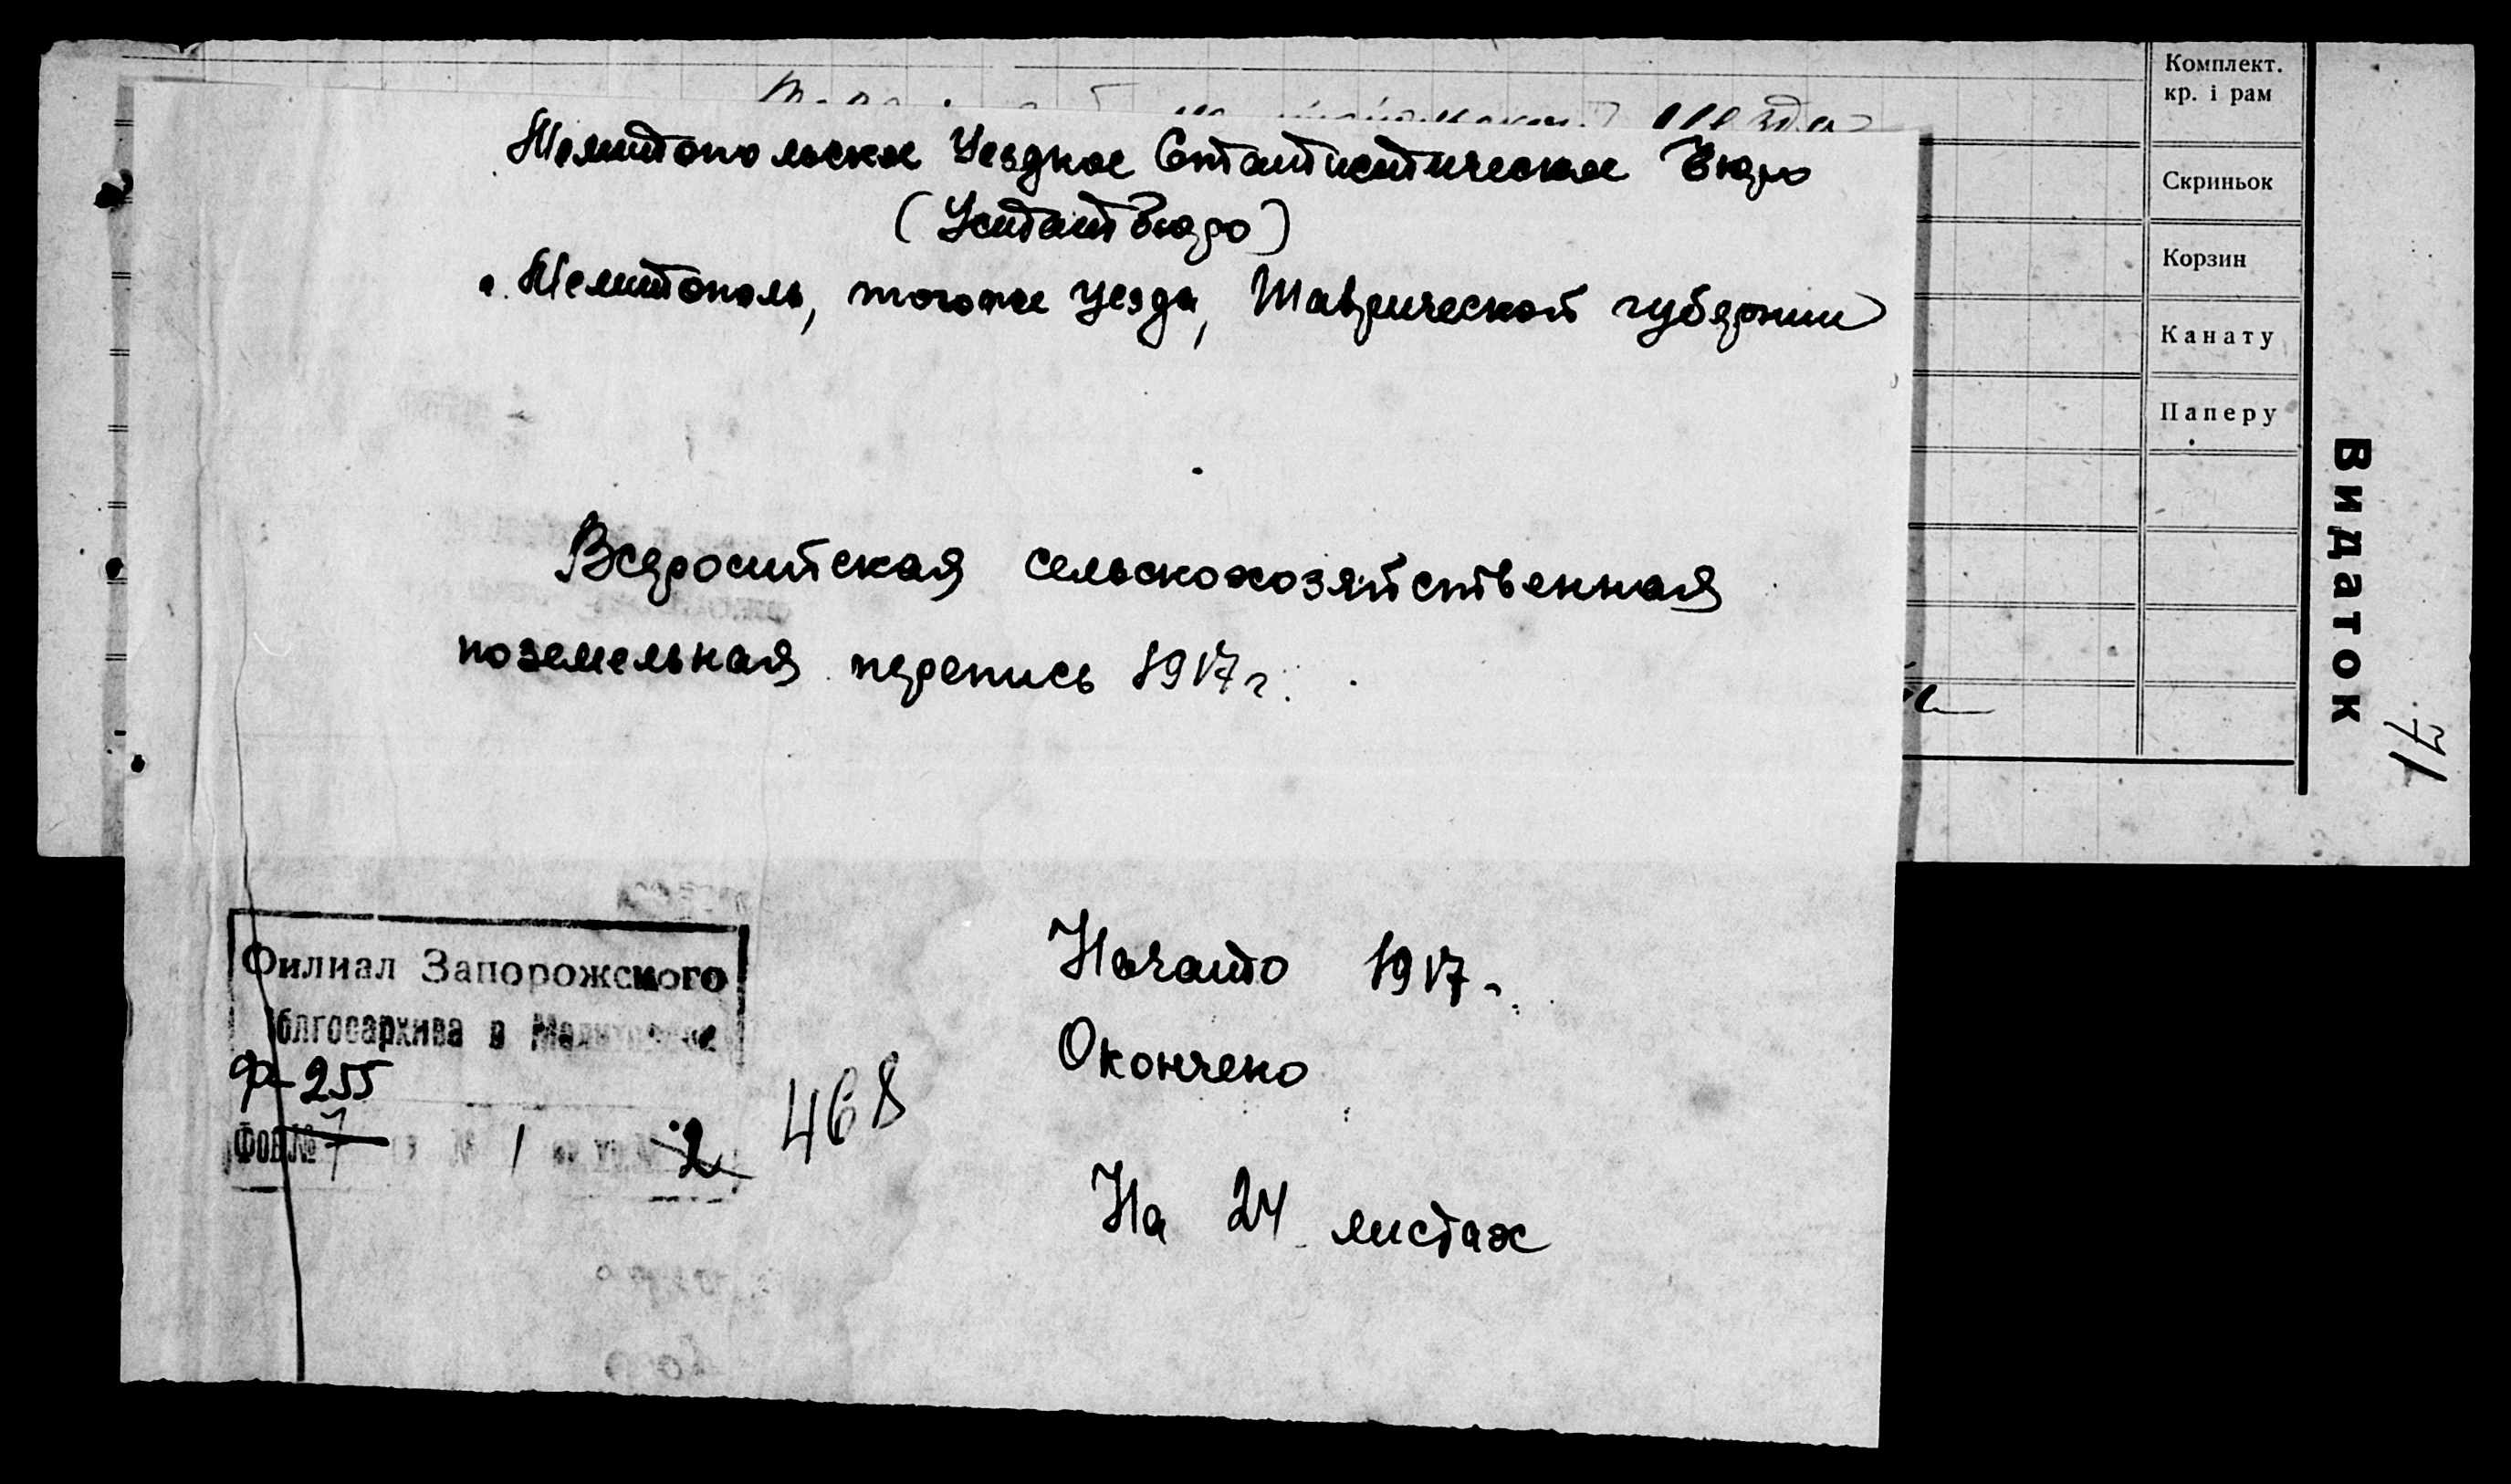 Мелитопольское Уездное Статистическое Бюро
(Устатбюро)
г. Мелитополь, того же уезда, Таврической губернии
Всероссийская сельскохозяйственная
поземельная перепись 1917 г.
Филиал Запорожского
облгосархива в
Ф-255
Фонд № 7 1 2
468
Начато 1917 г.
Окончено
На 24 листах
Комплект.
кр. і рам
Скриньок
Корзин
Канату
Паперу
Видаток
71